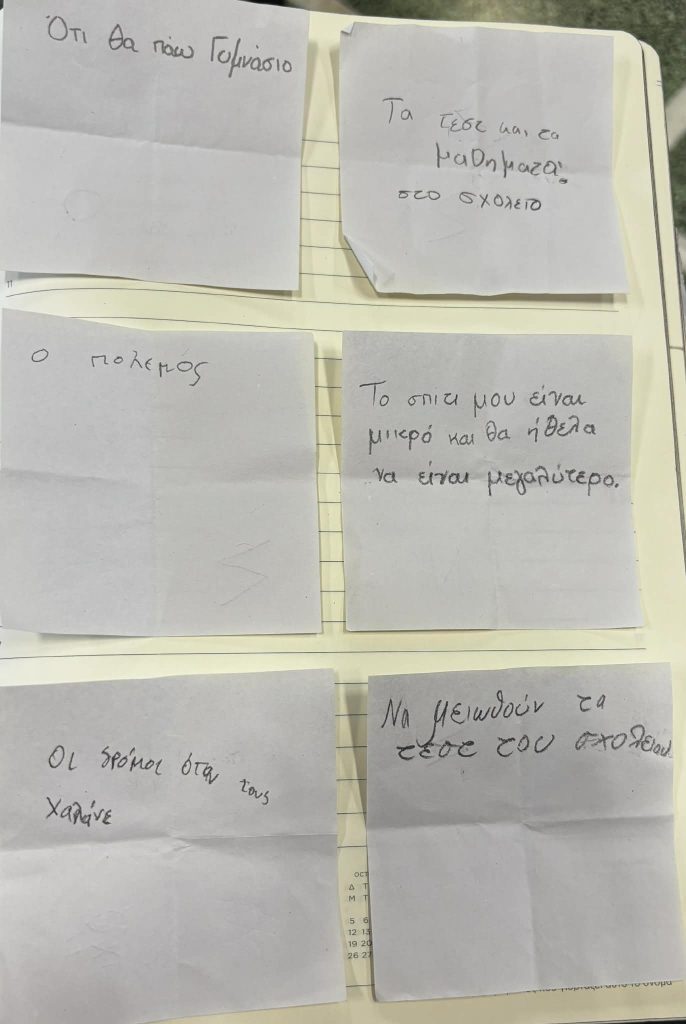 Ότι θα πάω Γυμνάσιο
Τα τεστ και τα
μαθηματα
στο σχολειο
Ο πολεμος
Το σπιτι μου είναι
μικρό και θα ήθελα
να είναι μεγαλύτερο.
Οι δρόμοι όταν τους
χαλάνε
Να μειωθούν τα
τεστ του σχολειου
ΟCΤ
Δ Τ
Μ Τ
5 6
12 13
19 20
26 27